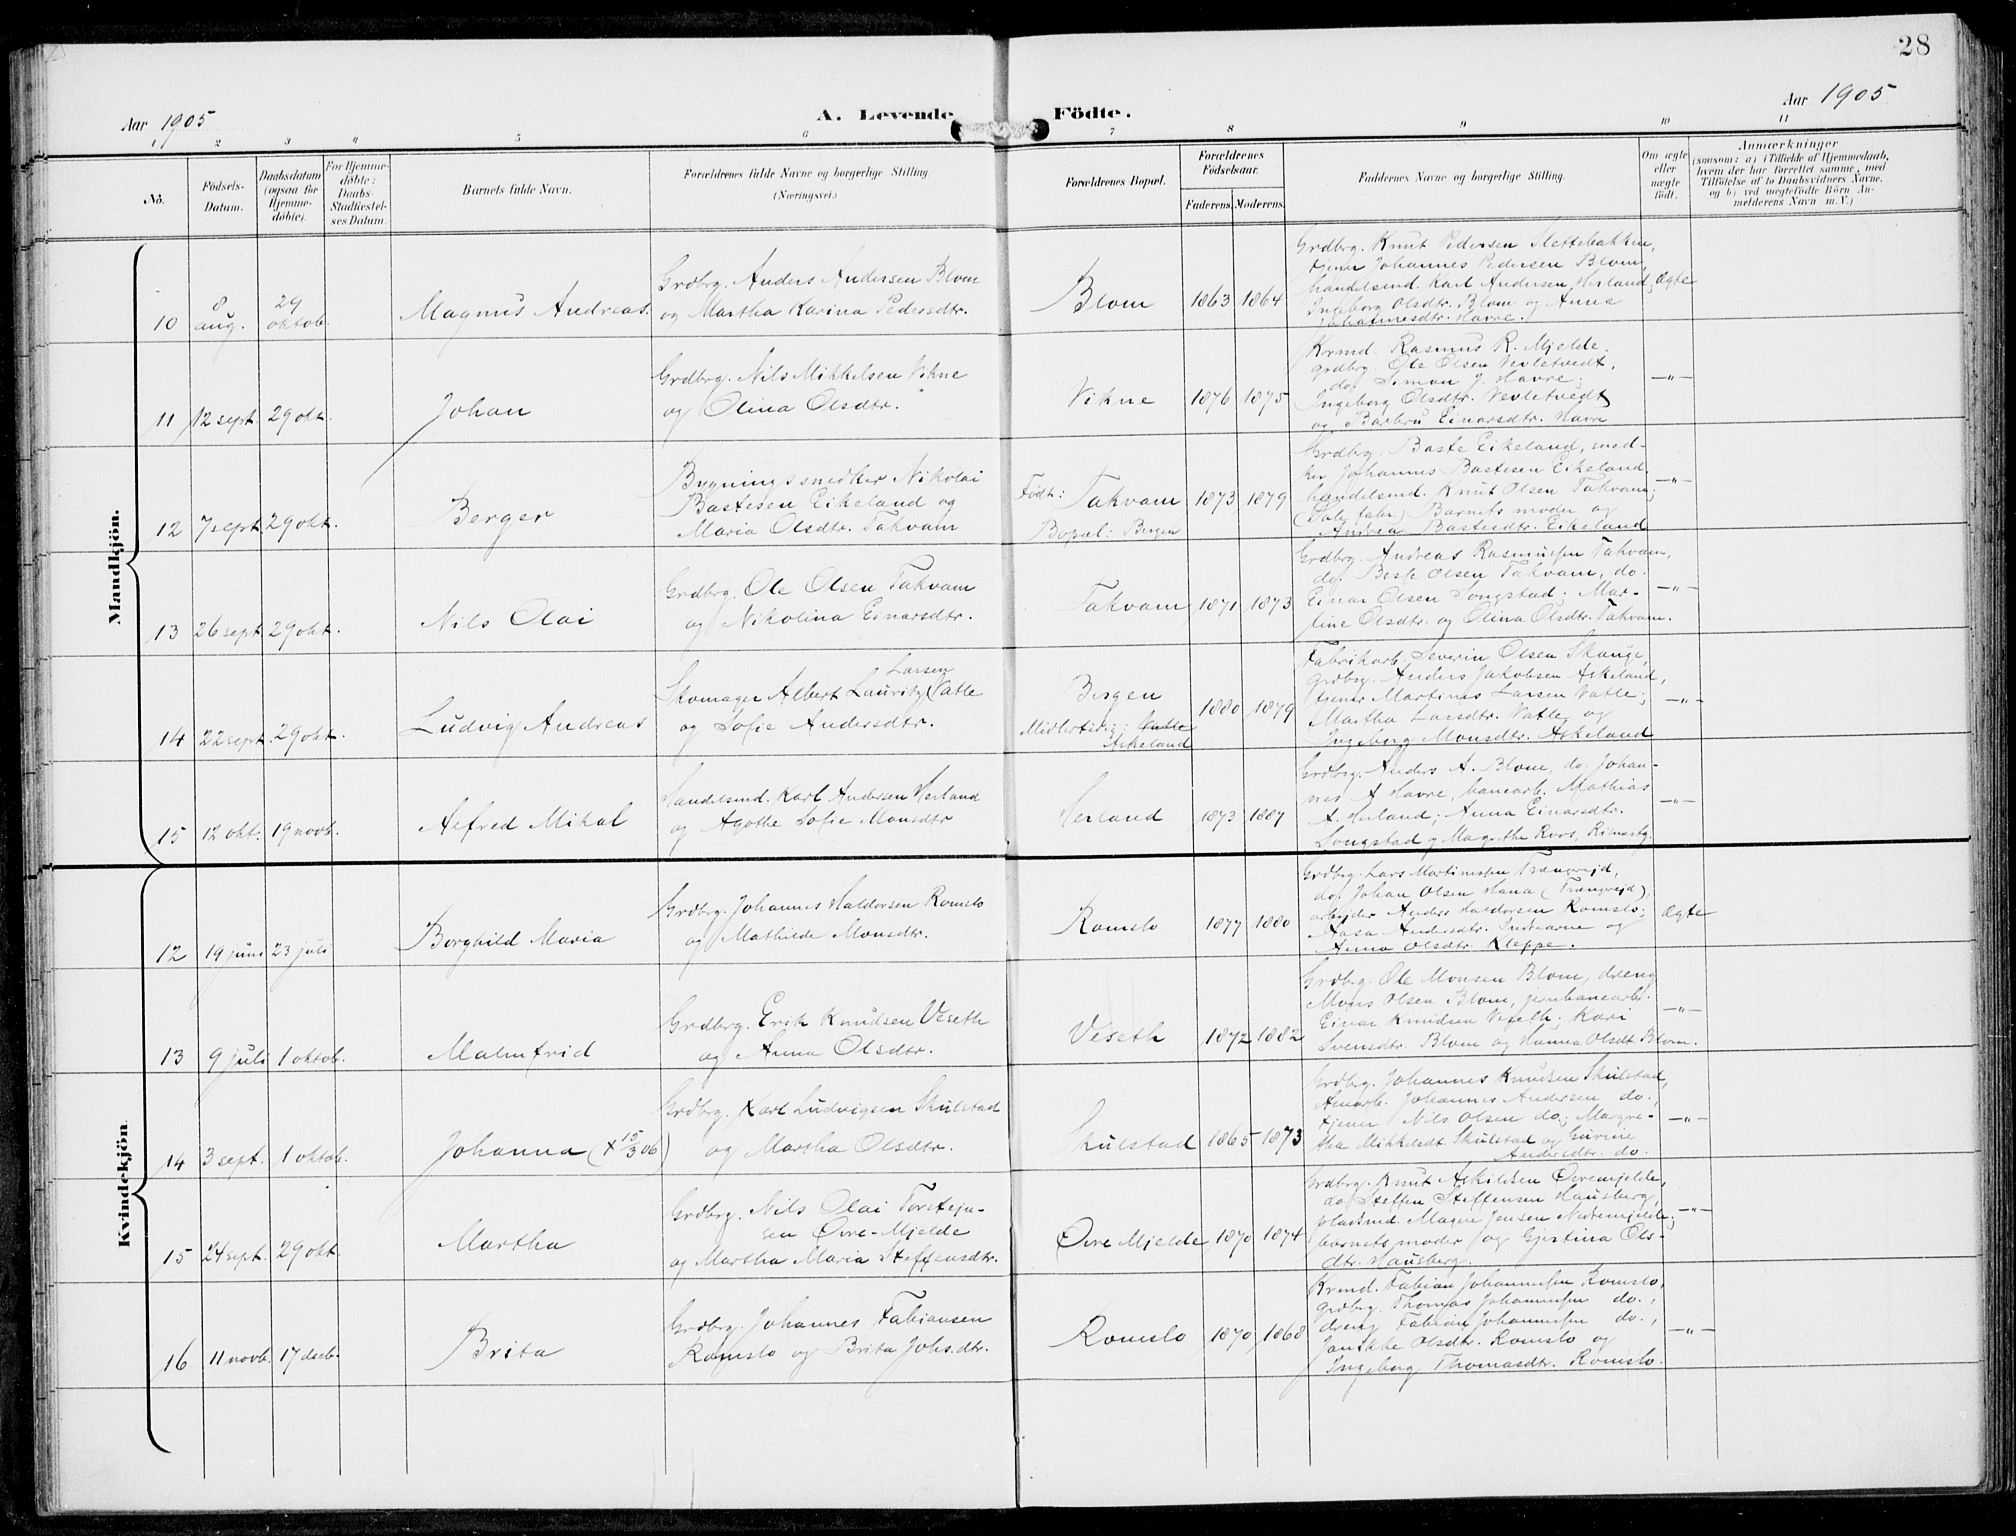 28
Aar 1905
A. Levende Födte.
Aar 1905
1 2 3 4 5 6 7 8 9 10 11
No. Födsels-Datum. Daabsdatum (ogsaa for Hjemme-døbte). For Hjemme-døbte: Daabs-Stadfæstel-ses Datum. Barnets fulde Navn. Forældrenes fulde Navne og borgerlige Stilling. (Næringsvei.) Forældrenes Bopæl. Forældrenes Fødselsaar. Faderens. Moderens. Faddernes Navne og borgerlige Stilling. Om ægte eller uægte født. Anmærkninger
(saasom: a) i Tilfælde af Hjemmedaab, hvem der har forrettet samme, med Tilføielse af to Daabsvidners Navne, og b) ved uægtefødte Börn An-melderens Navn m. V.)
Mandkjön.
10 8 aug. 29 oktob. Magnus Andreas.
Grdbrg. Anders Andersen Blom
og Martha Karina Pedersdtr.
Blom 1863 1864
Grdbrg. Knut Pedersen Slettebakken,
tjener Johannes Pedersen Blom,
handelsmd. Karl Andersen Herland;
Ingeborg Olsdtr. Blom og Anna
Johannesdtr. Havre.
Ægte
11 12 sept. 29 okt. Johan
Grdbrg. Nils Mikkelsen Vikne
og Olina Olsdtr.
Vikne 1876 1875
Krmd. Rasmus R. Mjelde,
grdbrg. Ole Olsen Vevletvedt,
do. Simon J. Havre;
Ingeborg Olsdtr. Vevletvedt
og Barbru Einarsdtr. Havre
—„—
12 7 sept. 29 okt. Berger
Bygningssnedker Nikolai
Bastesen Eikeland og
Maria Olsdtr. Takvam
Født: Takvam
Bopæl: Bergen
1873 1879
Grdbrg. Baste Eikeland, sned-
ker Johannes Bastesen Eikeland,
handelsmd. Knut Olsen Takvam;
Barnets moder og
Andrea Bastesdtr. Eikeland
—„—
13 26 sept. 29 okt. Nils Olai
Grdbrg. Ole Olsen Takvam
og Nikolina Einarsdtr.
Takvam 1871 1873
Grdbrg. Andreas Rasmussen Takvam,
do. Olsen Takvam, do.
Einar Olsen Songstad; Mar-
tine Olsdtr. og Olina Olsdtr. Takvam.
—„—
14 22 sept. 29 okt. Ludvig Andreas
Larsen
Skomager Albert Lauritz (Vatle
og Sofie Andersdtr.
Bergen
Midlertidig: Vatle
Askeland
1880 1879
Fabrikarb. Severin Olsen Skauge,
grdbrg. Anders Jakobsen Askeland,
tjener Martines Larsen Vatle;
Martha Larsdtr. Vatle og
Ingeborg Monsdtr. Askeland
—„—
15 12 okt. 19 novb. Alfred Mikal
Handelsmd. Karl Andersen Herland
og Agathe Sofie Monsdtr
Herland 1873 1887
Grdbrg. Anders A. Blom, do. Johan-
nes A Havre, banearb. Mathias
A. Herland; Anna Einarsdtr.
Songstad og Magrethe Roos,
—„—
Kvindekjön.
12 19 juni 23 juli Borghild Maria
Grdbrg. Johannes Haldorsen Romslo
og Mathilde Monsdtr.
Romslo 1877 1880
Grdbrg. Lars Martinussen Trængreid,
do. Johan Olsen Hana (Trængreid),
arbeider Anders Haldorsen Romslo;
Aasa Andersdtr. Indrearne og
Anna Olsdtr. Kleppe.
Ægte
13 9 juli 1 oktob. Malmfrid
Grdbrg. Erik Knudsen Veseth
og Anna Olsdtr.
Veseth 1872 1882
Grdbrg. Ole Monsen Blom, dreng
Mons Olsen Blom, jernbanearb.
Einar Knudsen Veseth; Kari
Svensdtr. Blom og Hanna Olsdt Blom.
—„—
14 3 sept. 1 oktob. Johanna (✗ 15/3 06)
Grdbrg. Karl Ludvigsen Skulstad
og Martha Olsdtr.
Skulstad 1865 1873
Grdbrg. Johannes Knudsen Skulstad,
Stenarb. Johannes Andersen do.,
tjener Nils Olsen do; Margre-
tha Mikkelsdt. Skulstad og Gurine
Andersdtr. do.
—„—
15 24 sept. 29 okt. Martha
Grdbrg. Nils Olai Torstejn-
sen Øvre-Mjelde
og Martha Maria Steffensdtr.
Øvre Mjelde 1870 1874
Grdbrg. Knut Askildsen Øvremjelde,
do. Steffen Steffensen Hausberg,
pladsmd. Magne Jensen Nedremjelde;
barnets moder og Gjertina Ols-
dtr. Hausberg.
—„—
16 11 novb. 17 desb. Brita
Grdbrg. Johannes Fabiansen
Romslo og Brita Johs.dtr.
Romslo 1870 1868
Krmd. Fabian Johannessen Romslo,
grdbrg. Thomas Johannessen do.,
dreng Fabian Johannessen do.,
Jannkke Olsdtr. Romslo og
Ingeborg Thomasdtr. Romslo.
—„—